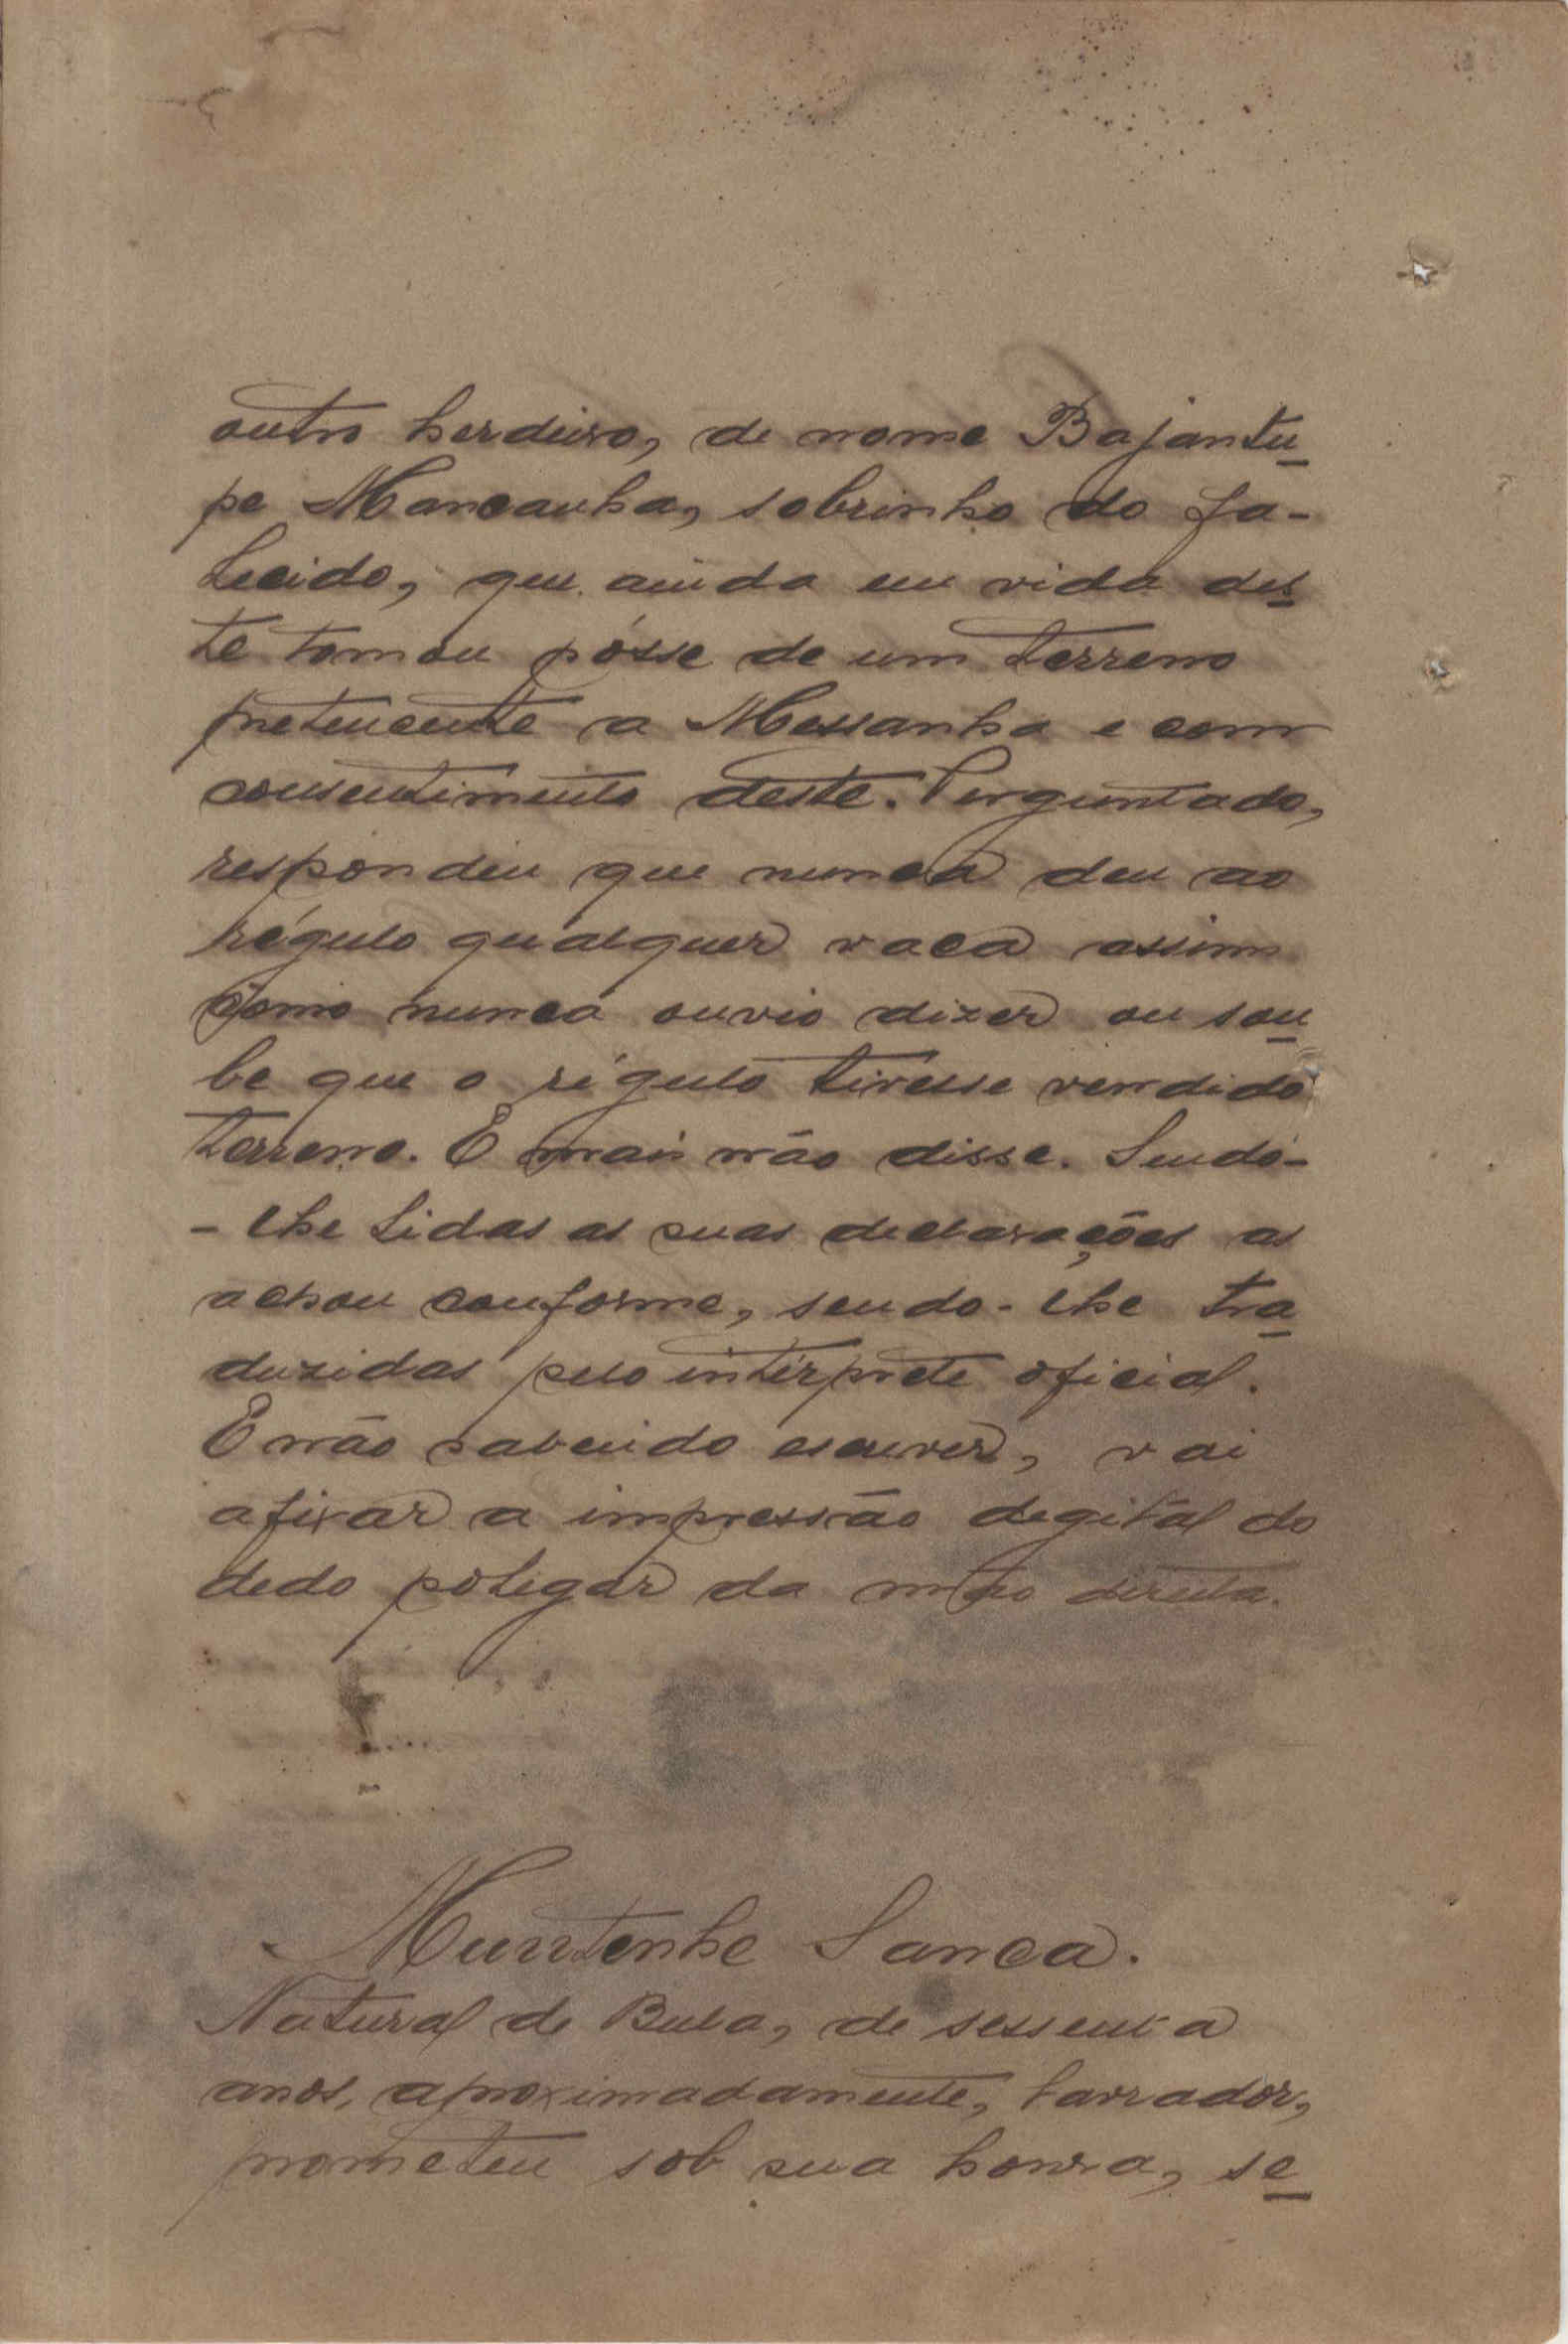 outro herdeiro, de nome Bajantu
pe Mancanha, sobrinho do fa-
lecido, que ainda em vida des
te tomou pósse de um terreno
pretencente a Messanha e com
consentimento deste. Perguntado,
respondeu que nunca deu ao
régulo qualquer vaca assim
como nunca ouvio dizer ou sou
be que o régulo tivesse vendido
terreno. E mais não disse. Sendo-
- lhe lidas as suas declarações as
achou conforme, sendo-lhe tra
duzidas pelo intérprete oficial.
E não sabendo escrever, vai
afixar a impressão degital do
dedo polegar da mão direita.
Muntenhe Sanca.
Natural de Bula, de sessenta
anos, aproximadamente, lavrador,
prometeu sob sua honra, se